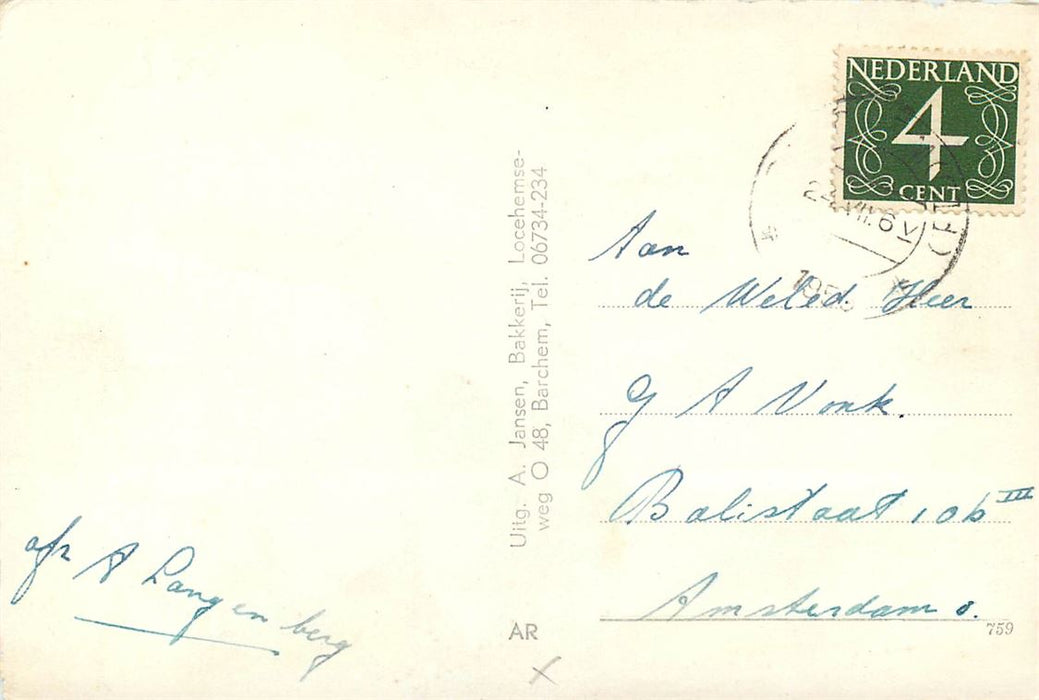 NEDERLAND
4
CENT
Aan
de Weled. Heer
G A Vonk.
Balistraat 10b III
Amsterdam O.
Uitg. A. Jansen, Bakkerij, Locehemse-
weg O 48, Barchem, Tel. 06734-234
afz A Langenberg
AR
759